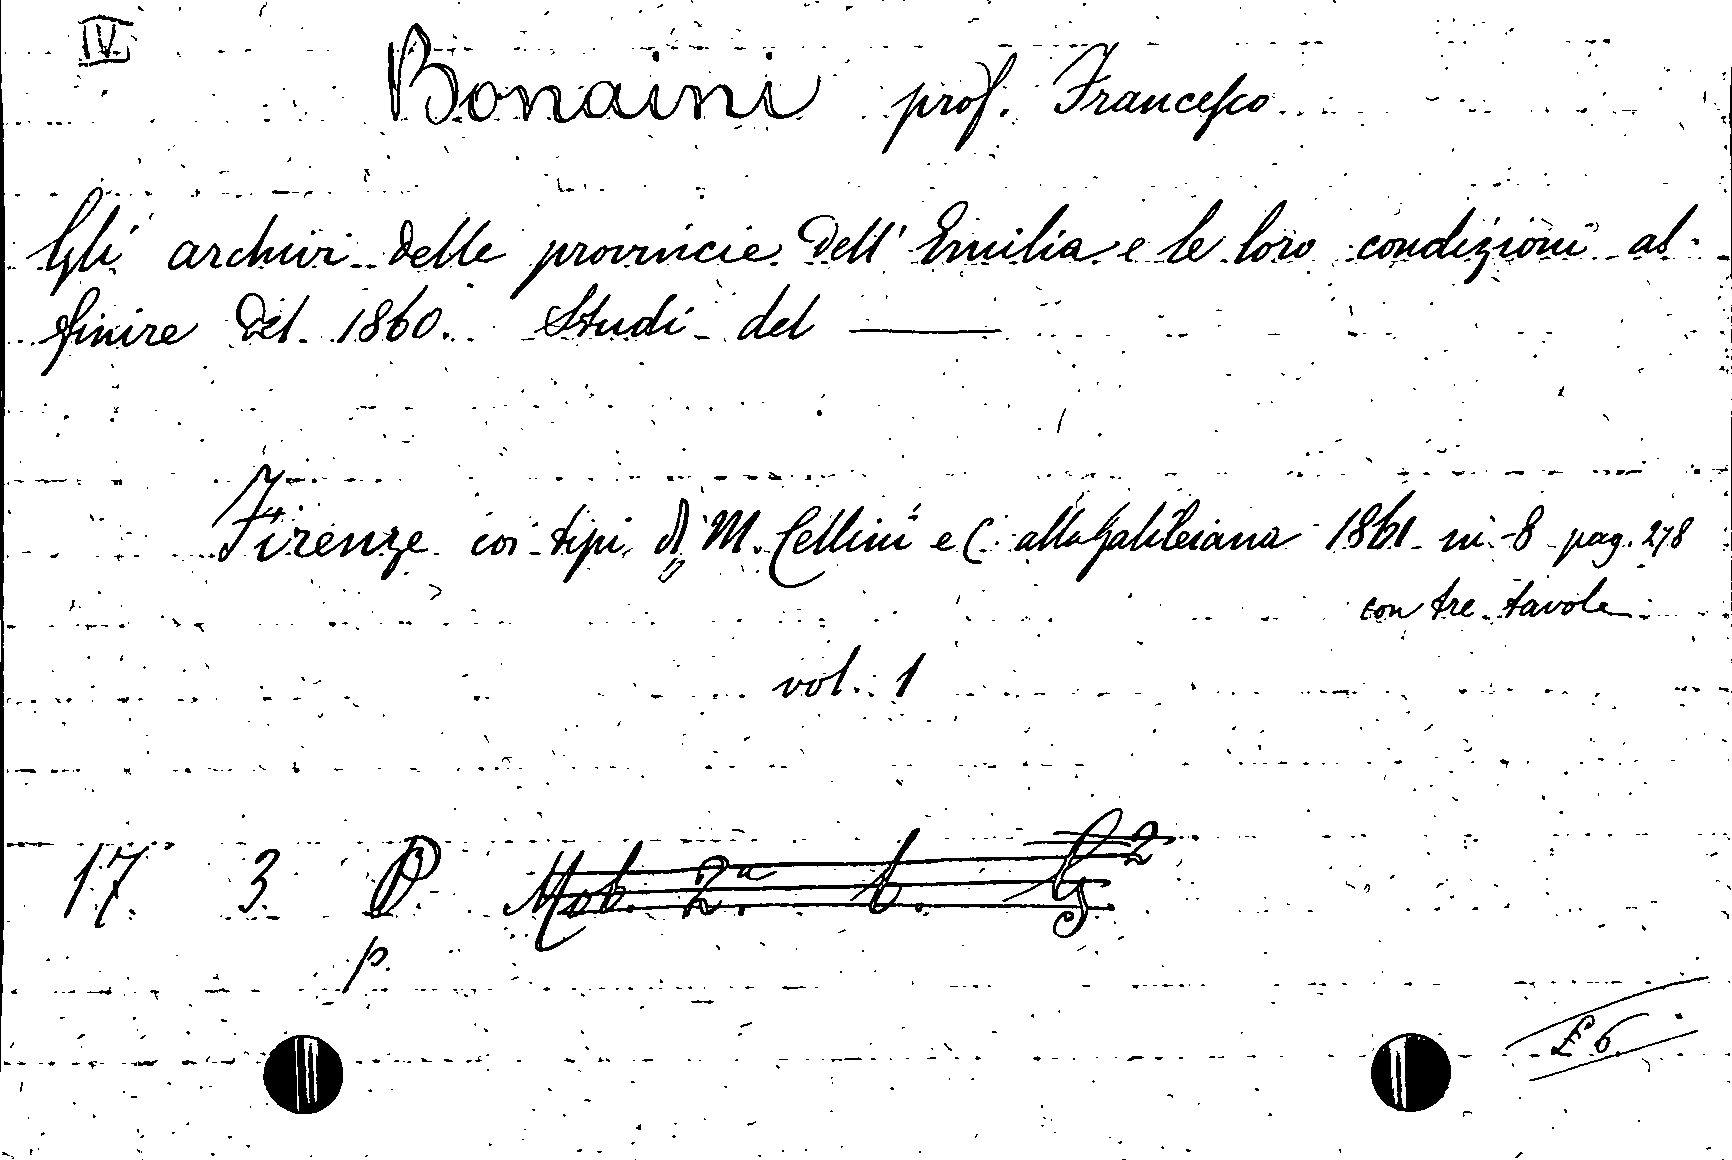 IV.
Bonaini prof. Francesco
Gli archivi delle provincie dell' Emilia e le loro condizioni al
finire del 1860. Studi del ———
Firenze coi tipi di M. Cellini e C. alla Galileiana 1861 in-8 pag. 278
con tre tavole
vol. 1
17. 3. D. Mob. 2.a b. G.2
p.
£ 6.